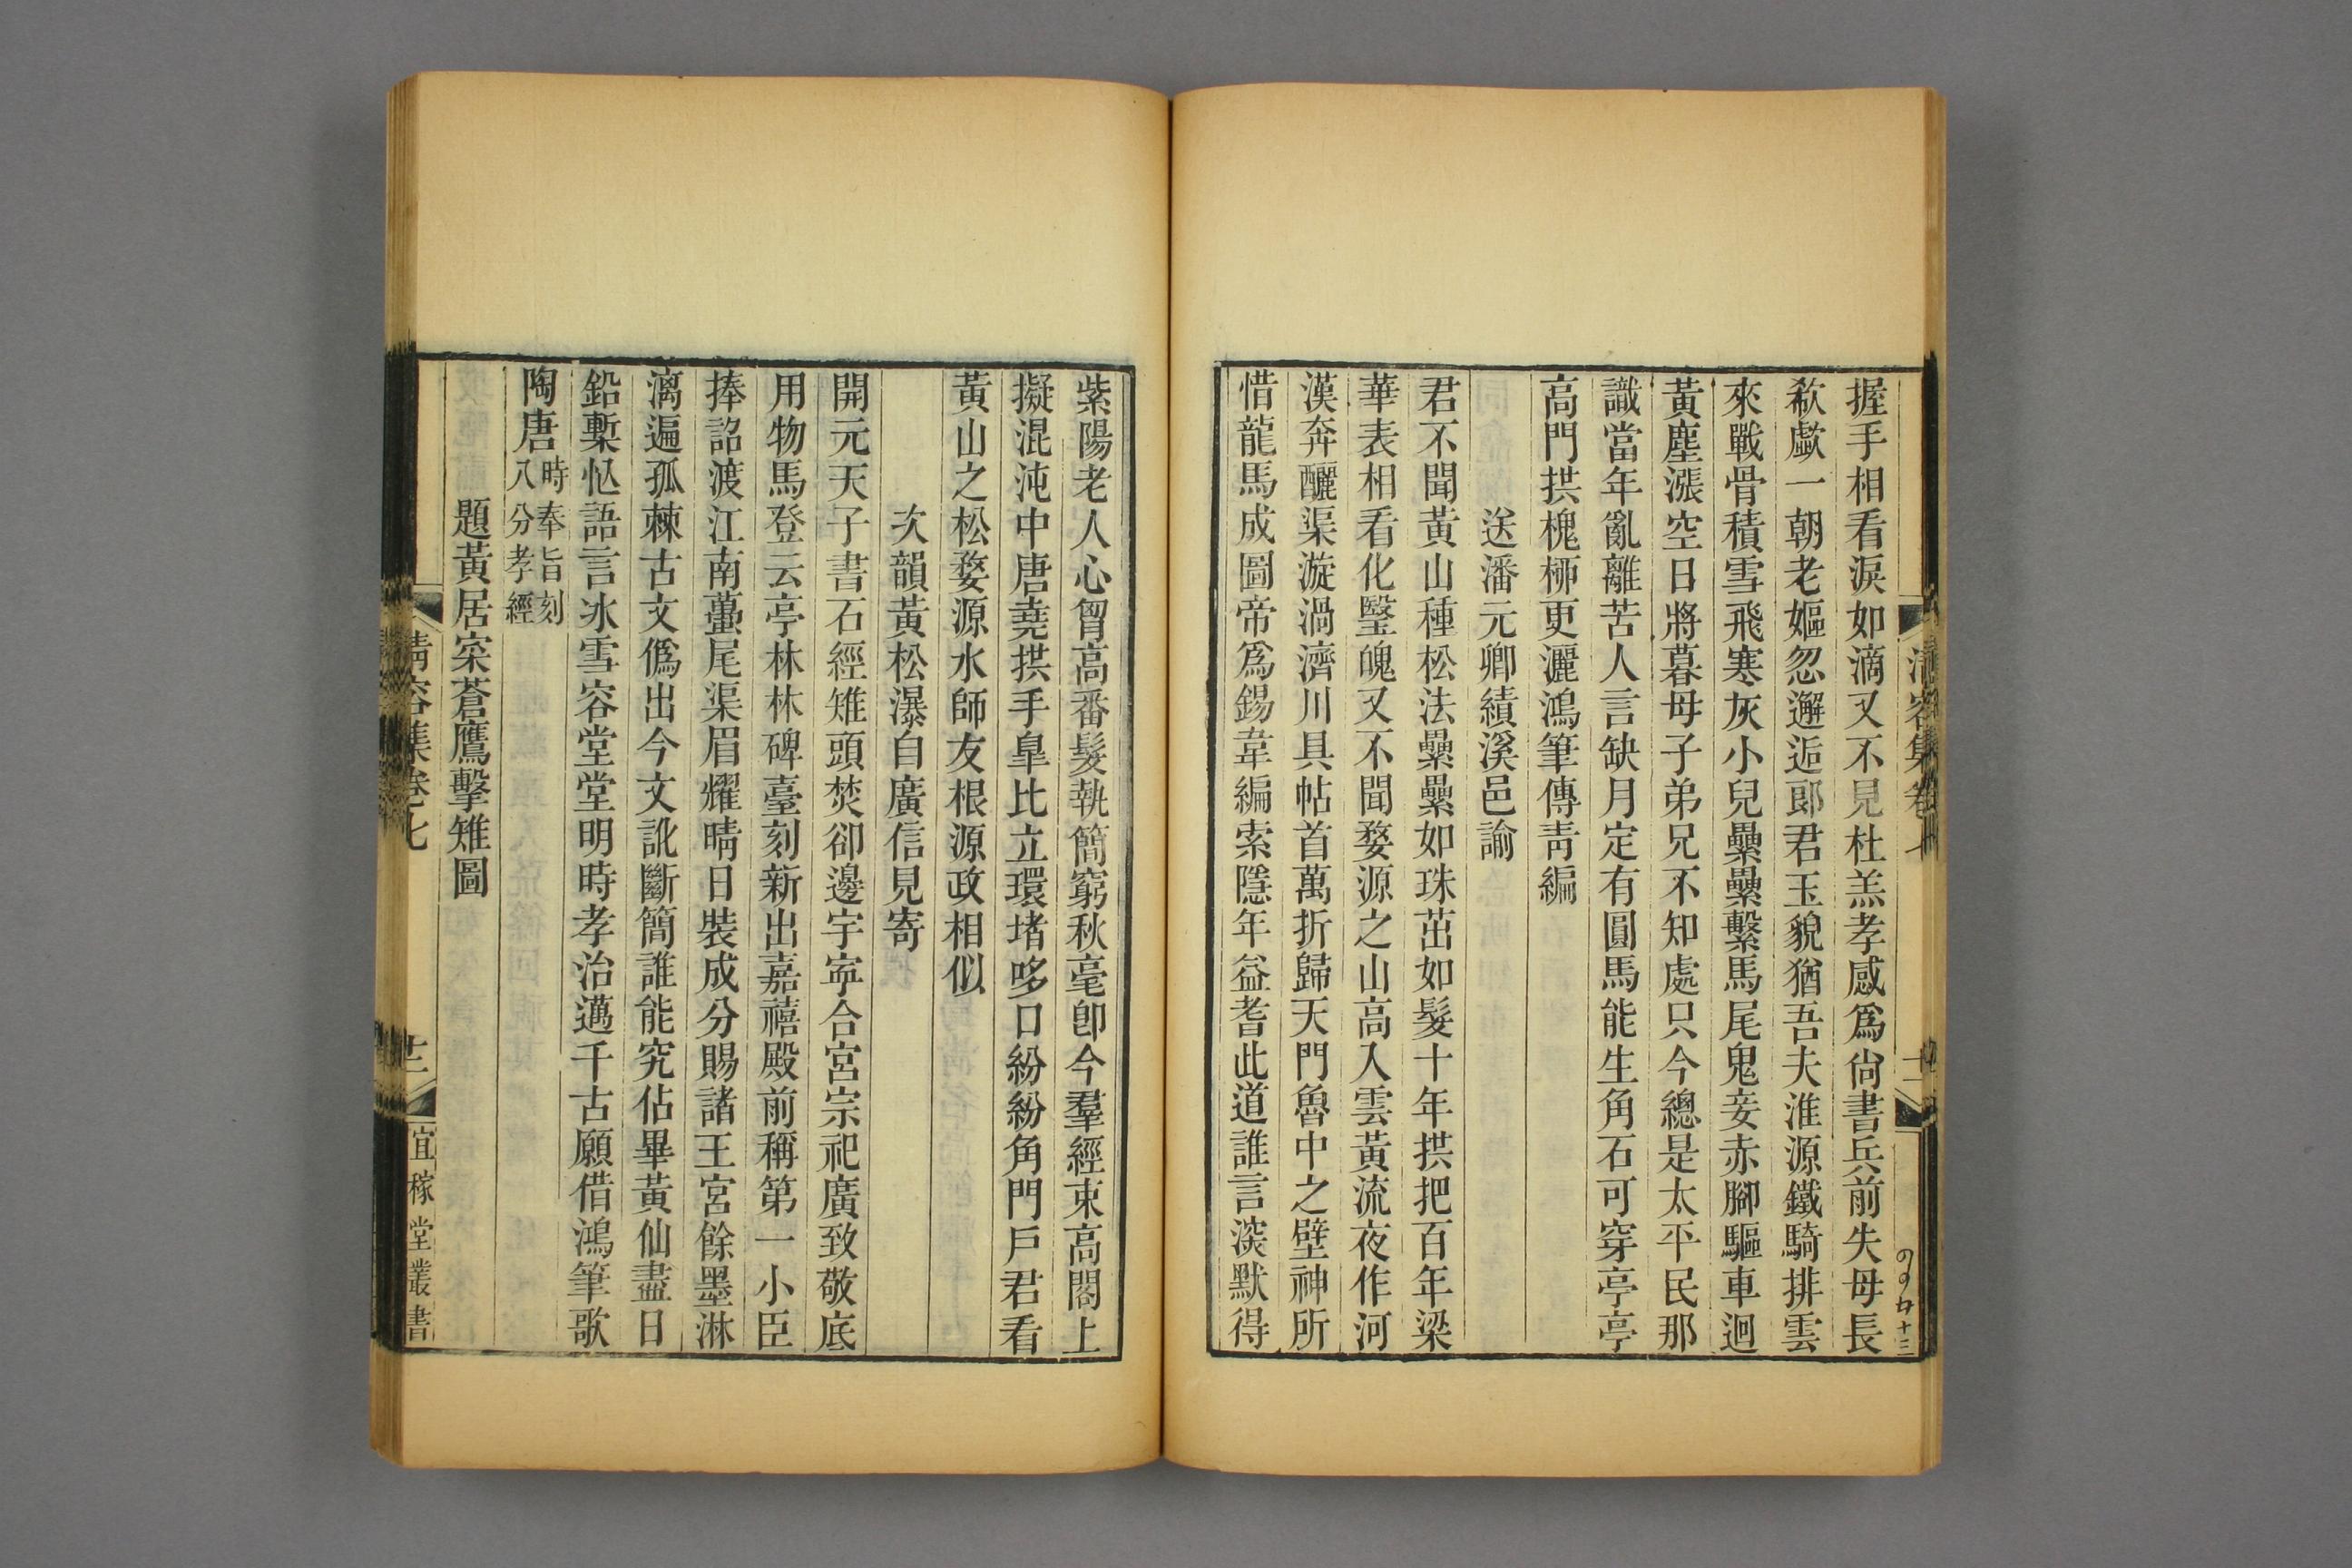 握手相看淚如滴又不見杜羔孝感爲尙書兵前失母長
欷歔一朝老嫗忽邂逅郎君玉貌猶吾夫淮源鐵騎排雲
來戰骨積雪飛寒灰小兒纍纍繫馬尾鬼妾赤脚驅車迴
黃塵漲空日將暮母子弟兄不知處只今總是太平民那
識當年亂離苦人言缺月定有圓馬能生角石可穿亭亭
高門拱槐桺更灑鴻筆傳靑編
送潘元卿績溪邑諭
君不聞黃山種松法纍纍如珠茁如髮十年拱把百年梁
華表相看化毉魄又不聞婺源之山高入雲黃流夜作河
漢奔釃渠漩渦濟川具帖首萬折歸天門魯中之壁神所
惜龍馬成圖帝爲錫韋編索隱年益耆此道誰言淡默得
紫陽老人心胷高番髮執簡窮秋毫卽今羣經束高閣上
擬混沌中唐堯拱手臯比立環堵哆口紛紛角門戶君看
黃山之松婺源水師友根源政相似
次韻黃松瀑自廣信見寄
開元天子書石經雉頭焚卻邊宇寧合宮宗祀廣致敬底
用物馬登云亭林林碑臺刻新出嘉禧殿前稱第一小臣
捧詔渡江南蠆尾渠眉耀晴日裝成分賜諸王宮餘墨淋
漓遍孤棘古文僞出今文訛斷簡誰能究佔畢黃仙盡日
鉛槧忪語言冰雪容堂堂明時孝治邁千古願借鴻筆歌
陶唐時奉旨刻八分孝經
題黃居寀蒼鷹擊雉圖
清容集卷七
十二
宜稼堂叢書